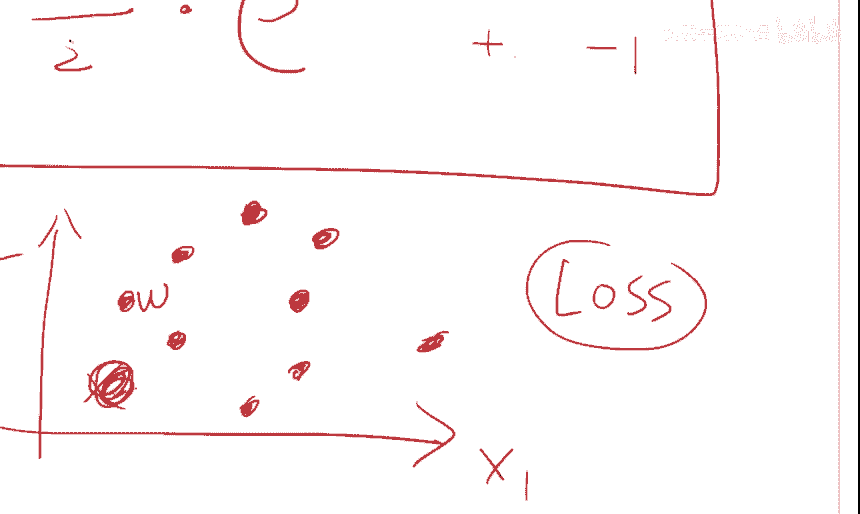 2 · e + -1
w
Loss
x1